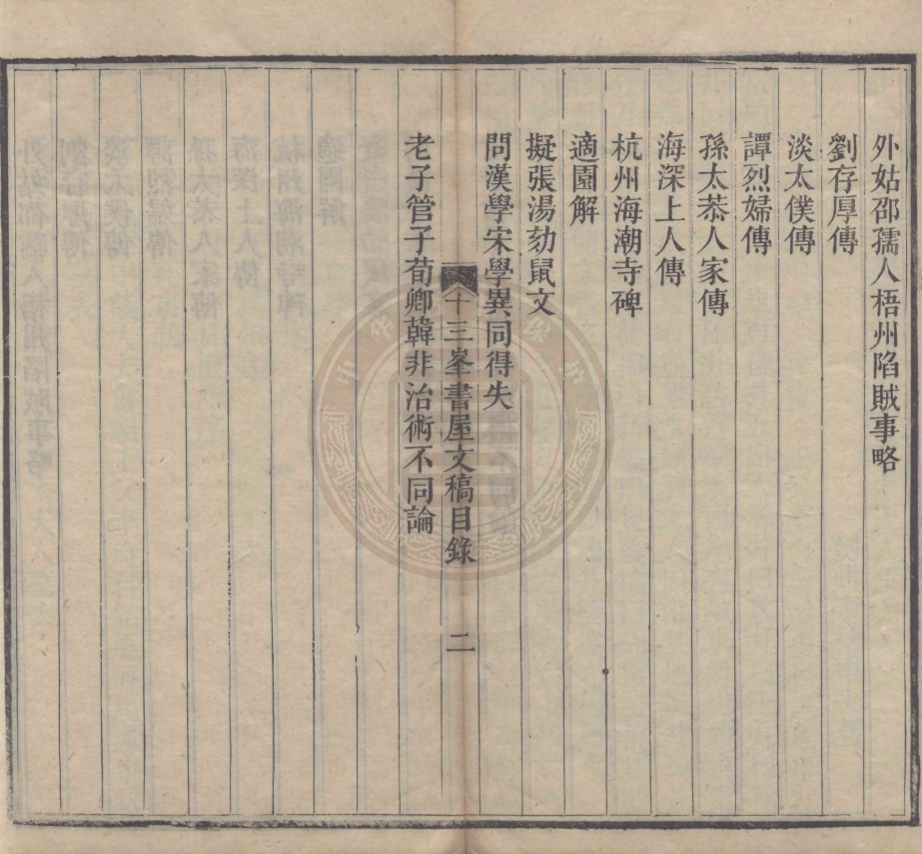 外姑邵孺人梧州陷賊事略
劉存厚傳
淡太僕傳
譚烈婦傳
孫太恭人家傳
海深上人傳
杭州海潮寺碑
適園解
擬張湯劾鼠文
問漢學宋學異同得失
十三峯書屋文稿目錄 二
老子管子荀卿韓非治術不同論